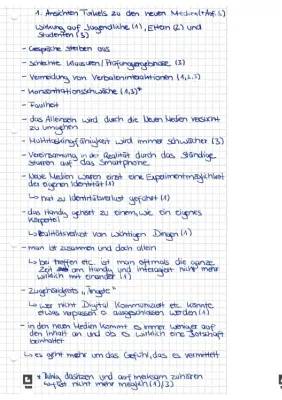 1. Ansichten Turkels zu den neuen Medien (+Auf. 3)
Wirkung auf Jugendliche (1), Eltern (2) und
Studenten (3)
- Gespräche sterben aus
- schlechte Klausuren/Prüfungsergebnisse (3)
- Vermeidung von Verbalinteraktionen (1,2,3)
- Konzentrationsschwäche (1,3)*
- Faulheit
- das Alleinsein wird durch die Neuen Medien versucht
zu umgehen
- Multitaskingfähigkeit wird immer schwächer (3)
- Vereinsamung in der Realität durch das ständige
starren auf das Smartphone
- Neue Medien waren einst eine Experimentmöglichkeit
der eigenen Identität (1)
↳ hat zu Identitätsverlust geführt (1)
- das Handy gehört zu einem, wie ein eigenes
Körperteil
↳ Realitätsverlust von wichtigen Dingen (1)
- man ist zusammen und doch allein
↳ bei treffen etc. ist man oftmals die ganze
Zeit am Handy und interagiert nicht mehr
wirklich mit einander (1)
- Zugehörigkeits "Ängste"
↳ wer nicht Digital kommuniziert etc. könnte
etwas verpassen o. ausgeschlossen werden (1)
- in den neuen Medien kommt es immer weniger auf
den Inhalt an und ob es wirklich eine Botschaft
beinhaltet
↳ es geht mehr um das Gefühl, das es vermittelt
* Ruhig dasitzen und aufmerksam zuhören
ist nicht mehr möglich (1)(3)